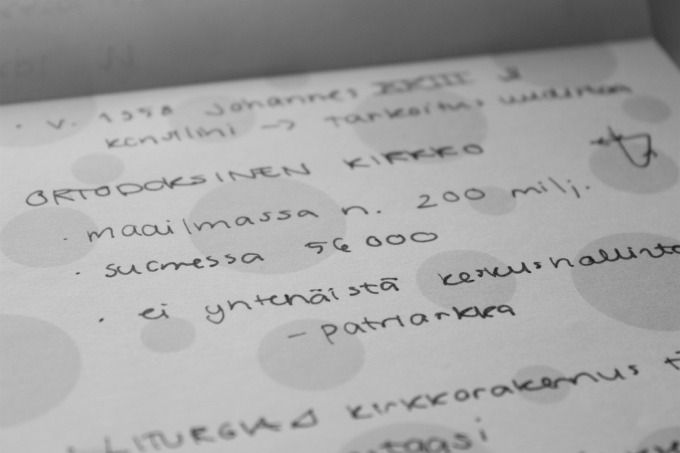 · v. 1958 Johannes XXIII
konsiilini → tarkoitus uudistaa
ORTODOKSINEN KIRKKO
· maailmassa n. 200 milj.
· suomessa 56 000
· ei yhtenäistä keskushallinto
– patriarkka
LITURGIA kirkkorakennus